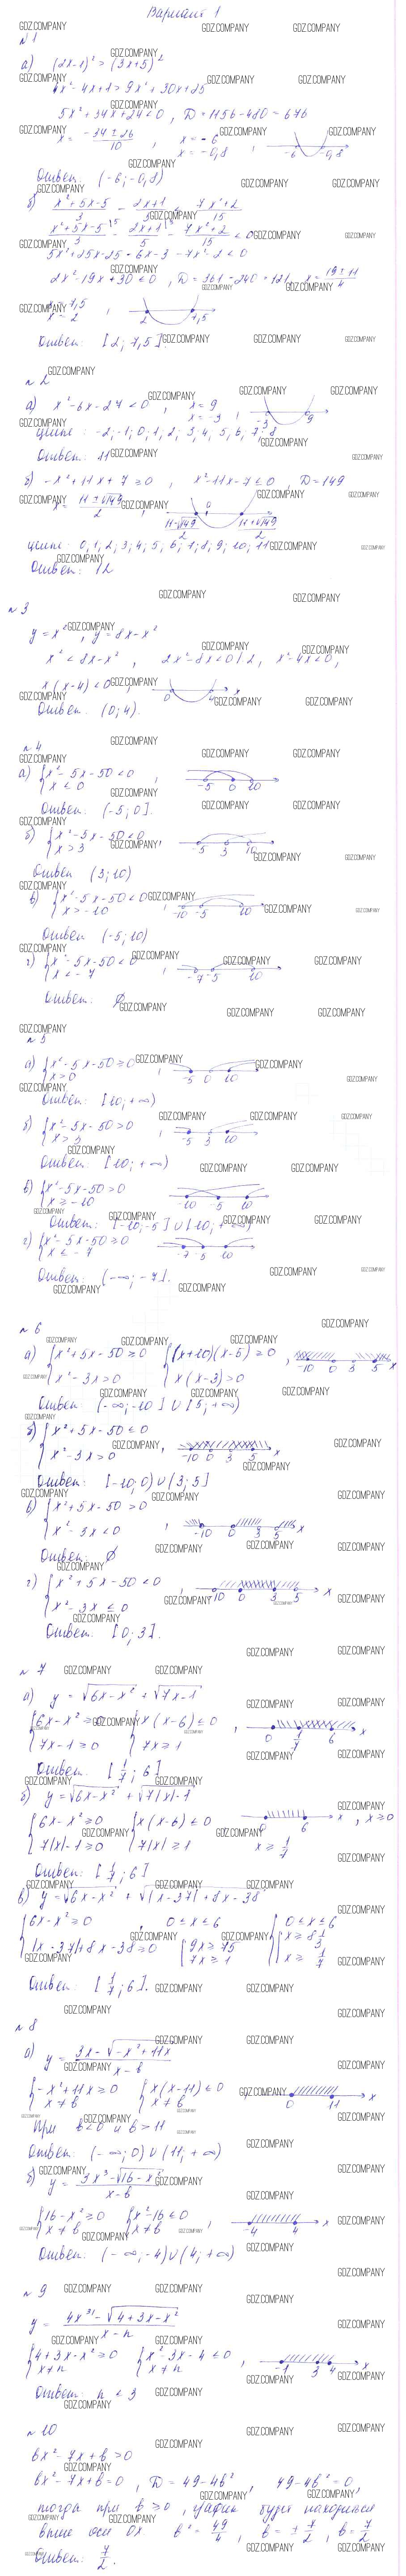 Вариант 1
№ 1
а) (2x-1)² > (3x+5)²
4x² - 4x + 1 > 9x² + 30x + 25
5x² + 34x + 24 < 0, D = 1156 - 480 = 676
x = (-34 ± 26)/10, x = -6
x = -0,8
-6 -0,8
Ответ: (-6; -0,8)
б) (x²+5x-5)/3 - (2x+1)/5 ≤ (7x²+2)/15
(x²+5x-5)/3 - (2x+1)/5 - (7x²+2)/15 < 0
5x² + 25x - 25 - 6x - 3 - 7x² - 2 < 0
2x² - 19x + 30 < 0, D = 361 - 240 = 121, x = (19 ± 11)/4
x = 7,5
x = 2
2 7,5
Ответ: [2; 7,5].
№ 2
а) x² - 6x - 27 < 0, x = 9
x = -3
-3 9
целые: -2; -1; 0; 1; 2; 3; 4; 5; 6; 7; 8
Ответ: 11
б) -x² + 11x + 7 ≥ 0, x² - 11x - 7 ≤ 0, D = 149
x = (11 ± √149)/2
0
(11-√149)/2 (11+√149)/2
целые: 0; 1; 2; 3; 4; 5; 6; 7; 8; 9; 10; 11
Ответ: 12
№ 3
y = x², y = 8x - x²
x² < 8x - x², 2x² - 8x < 0 |:2, x² - 4x < 0,
x(x-4) < 0,
0 4 x
Ответ: (0; 4).
№ 4
а) { x² - 5x - 50 < 0
x ≤ 0
-5 0 10
Ответ: (-5; 0].
б) { x² - 5x - 50 < 0
x > 3
-5 3 10
Ответ: (3; 10)
в) { x² - 5x - 50 < 0
x > -10
-10 -5 10
Ответ: (-5; 10)
г) { x² - 5x - 50 < 0
x < -7
-7 -5 10
Ответ: ∅
№ 5
а) { x² - 5x - 50 ≥ 0
x > 0
-5 0 10
Ответ: [10; +∞)
б) { x² - 5x - 50 > 0
x > 3
-5 3 10
Ответ: [10; +∞)
в) { x² - 5x - 50 > 0
x ≥ -10
-10 -5 10
Ответ: [-10; -5] ∪ [10; +∞)
г) { x² - 5x - 50 ≥ 0
x ≤ -7
-7 -5 10
Ответ: (-∞; -7].
№ 6
а) { x² + 5x - 50 ≥ 0 { (x+10)(x-5) ≥ 0
x² - 3x > 0 x(x-3) > 0
-10 0 3 5 x
Ответ: (-∞; -10] ∪ [5; +∞)
б) { x² + 5x - 50 ≤ 0
x² - 3x > 0
-10 0 3 5 x
Ответ: [-10; 0) ∪ (3; 5]
в) { x² + 5x - 50 > 0
x² - 3x < 0
-10 0 3 5 x
Ответ: ∅
г) { x² + 5x - 50 < 0
x² - 3x ≤ 0
-10 0 3 5 x
Ответ: [0; 3].
№ 7
а) y = √(6x-x²) + √(7x-1)
{ 6x - x² ≥ 0 { x(x-6) ≤ 0
7x - 1 ≥ 0 7x ≥ 1
0 1/7 6 x
Ответ: [1/7; 6]
б) y = √(6x-x²) + √(7|x|-1)
{ 6x - x² ≥ 0 { x(x-6) ≤ 0
7|x| - 1 ≥ 0 7|x| ≥ 1
0 6 x, x ≥ 0
x ≥ 1/7
Ответ: [1/7; 6]
в) y = √(6x-x²) + √(|x-37|+8x-38)
{ 6x - x² ≥ 0, 0 ≤ x ≤ 6 { 0 ≤ x ≤ 6
|x-37| + 8x - 38 ≥ 0 [ 9x ≥ 75 x ≥ 8 1/3
7x ≥ 1 x ≥ 1/7
Ответ: [1/7; 6].
№ 8
а) y = (3x - √(-x²+11x))/(x-b)
{ -x² + 11x ≥ 0 { x(x-11) ≤ 0
x ≠ b x ≠ b
0 11 x
При b < 0 и b > 11
Ответ: (-∞; 0) ∪ (11; +∞)
б) y = (3x³ - √(16-x²))/(x-b)
{ 16 - x² ≥ 0 { x² - 16 ≤ 0
x ≠ b x ≠ b
-4 4 x
Ответ: (-∞; -4) ∪ (4; +∞)
№ 9
y = (4x³¹ - √(4+3x-x²))/(x-n)
{ 4 + 3x - x² ≥ 0 { x² - 3x - 4 ≤ 0
x ≠ n x ≠ n
-1 3 4 x
Ответ: n < 3
№ 10
bx² - 7x + b > 0
bx² - 7x + b = 0, D = 49 - 4b², 49 - 4b² = 0,
тогда при b ≥ 0, график будет находиться
выше оси Ox b² = 49/4, b = ± 7/2, b = 7/2
Ответ: 7/2.